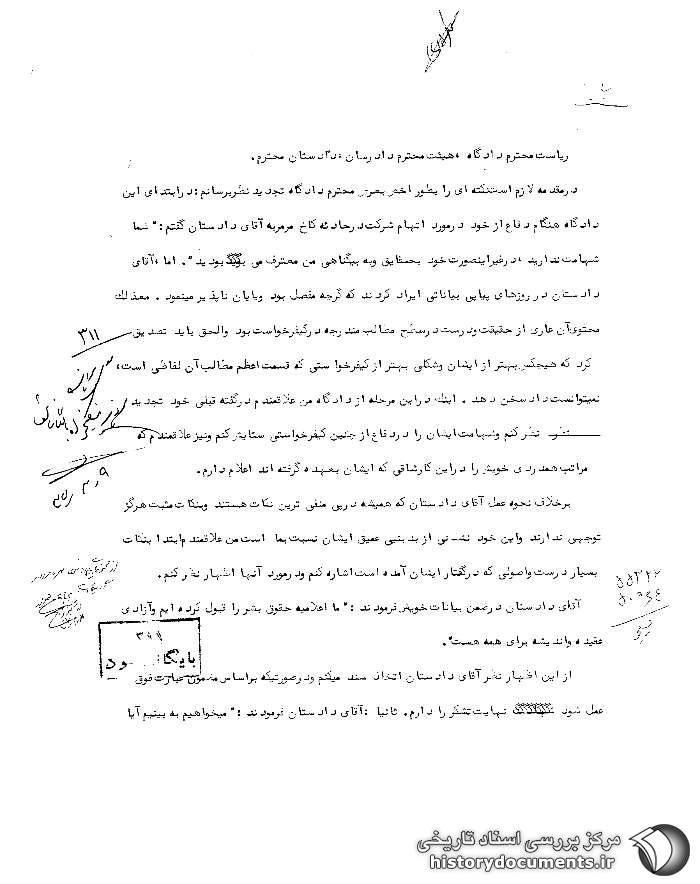 ریاست محترم دادگاه ، هیئت محترم دادرسان ، دادستان محترم .
درمقدمه لازم است نکته ای را بطور اختصار بعرض محترم دادگاه تجدید نظربرسانم : درابتدای این
دادگاه هنگام دفاع از خود درمورد اتهام شرکت درحادثه کاخ مرمربه آقای دادستان گفتم : " شما
شهامت ندارید ، درغیراینصورت خود بحقایق وبه بیگناهی من معترف می بودید " . اما ، آقای
دادستان در روزهای پیاپی بیاناتی ایراد کردند که گرچه مفصل بود وپایان ناپذیر مینمود . معذلك
محتوی آن عاری از حقیقت ودرست درسطح مطالب مندرجه درکیفرخواست بود والحق باید تصدیق
کرد که هیچکس بهتر از ایشان وشکلی بهتر از کیفرخواستی که قسمت اعظم مطالب آن لفاظی است ،
نمیتوانست داد سخن دهد . اینك دراین مرحله از دادگاه من علاقمندم درگفته قبلی خود تجدید
نظر کنم وشهامت ایشان را دردفاع از چنین کیفرخواستی ستایش کنم ونیزعلاقمندم که
مراتب همدردی خویش را دراین کارشاقی که ایشان بعهده گرفته اند اعلام دارم .
برخلاف نحوه عمل آقای دادستان که همیشه درپی منفی ترین نکات هستند وبنکات مثبت هرگز
توجهی ندارند واین خود نشانی از بدبینی عمیق ایشان نسبت بما است من علاقمندم ابتدا بنکات
بسیار درست واصولی که درگفتار ایشان آمده است اشاره کنم ودرمورد آنها اظهار نظر کنم .
آقای دادستان درضمن بیانات خویش فرمودند : " ما اعلامیه حقوق بشر را قبول کرده ایم وآزادی
عقیده واندیشه برای همه هست " .
از این اظهار نظر آقای دادستان اتخاذ سند میکنم ودرصورتیکه براساس مضمون عبارت فوق
عمل شود نهایت تشکر را دارم . ثانیا : آقای دادستان فرمودند : " میخواهیم به بینیم آیا
۳۱۱
بایگانی شود
مرکز بررسی اسناد تاریخی
historydocuments.ir